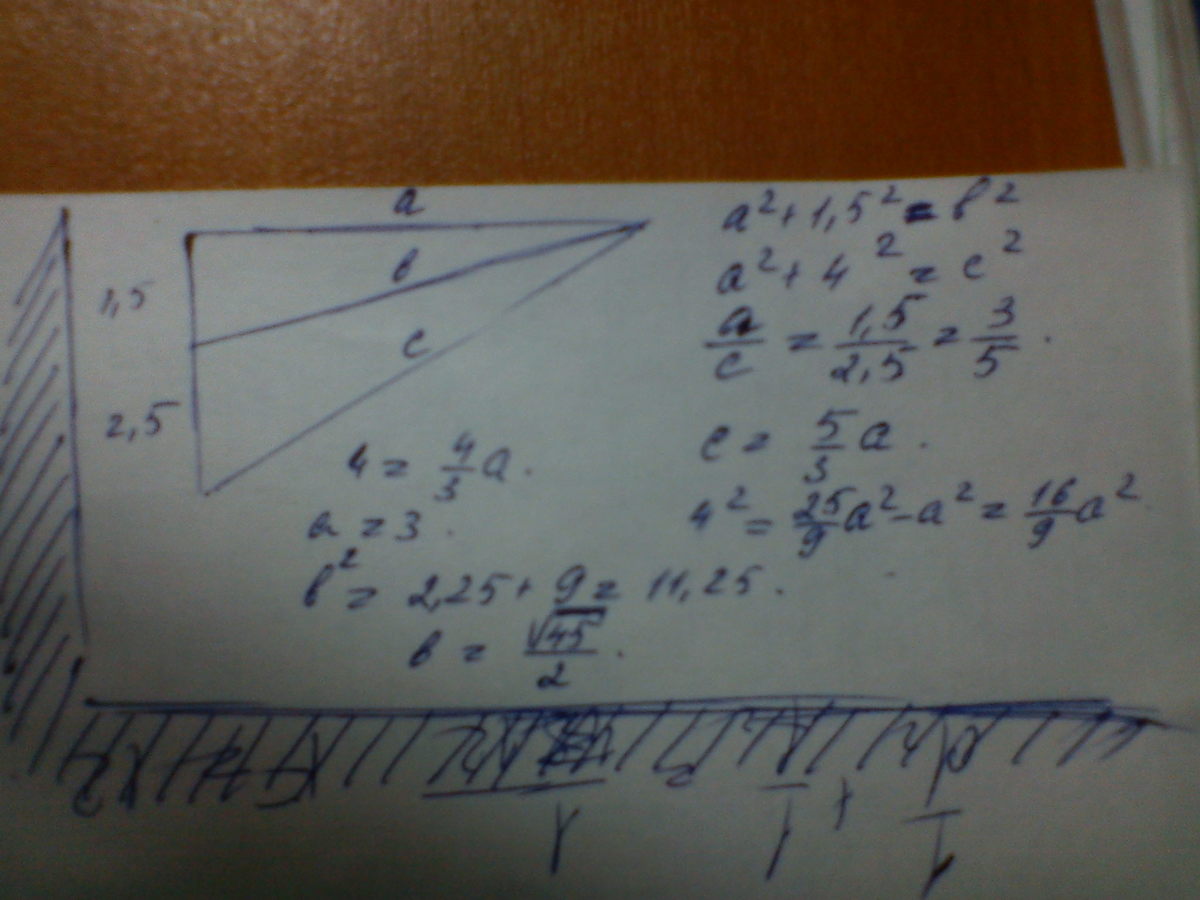 a
в
c
1,5
2,5
a² + 1,5² = в²
a² + 4² = c²
a/c = 1,5/2,5 = 3/5.
c = 5/3 a.
4² = 25/9 a² - a² = 16/9 a²
4 = 4/3 a.
a = 3.
в² = 2,25 + 9 = 11,25.
в = √45/2.